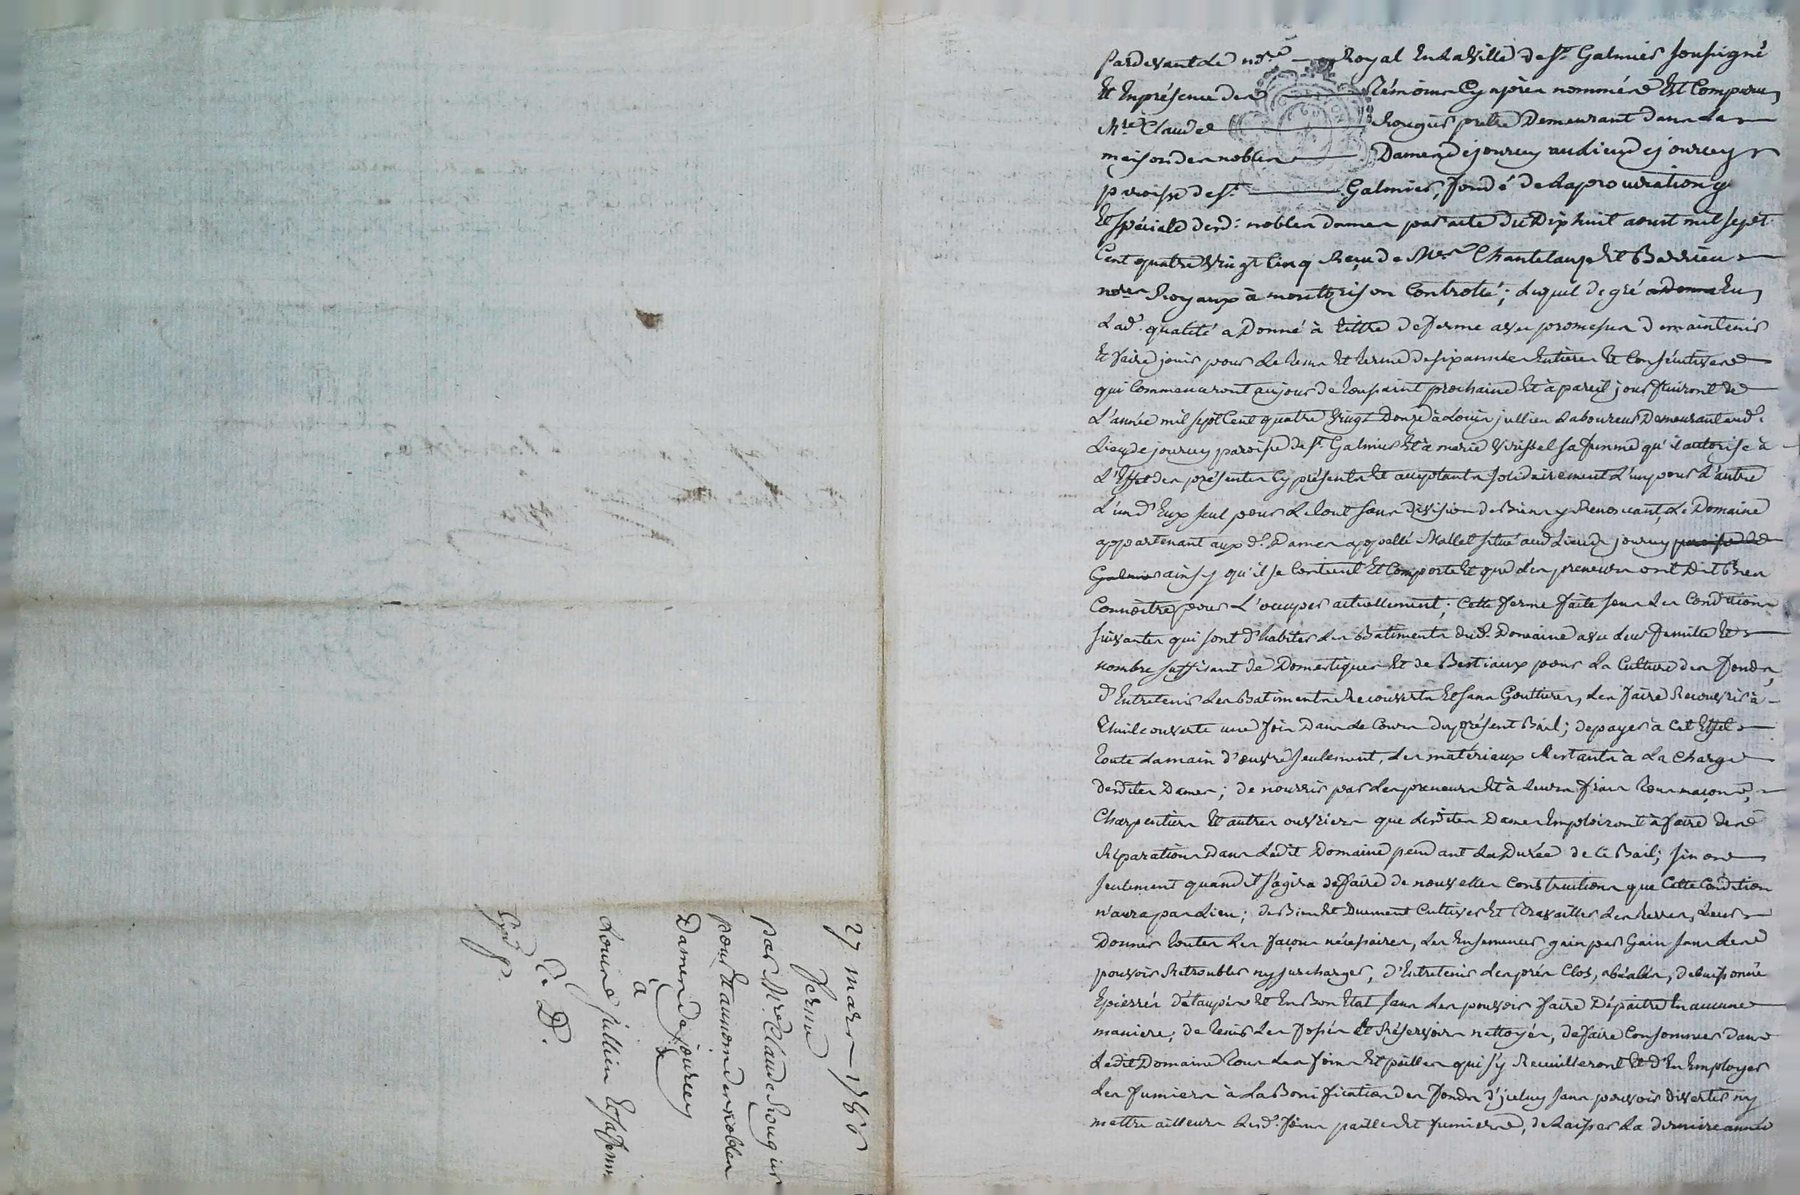 Pardevant le nore Royal En la Ville de St Galmier soussigné
Et En présence des témoins Cy après nommés Est Comparu
Mre Claude Rougier prêtre Demeurant dans la
maison des nobles Dames de jourcey au lieu de jourcey
paroisse de St Galmier, fondé de la procuration
Et spéciale desd: nobles dames par acte du Dix huit aoust mil sept
Cent quatre Vingt Cinq Reçu de Mes Chantelauze Et Barrieu
nores Royaux à montbrison Controllé; lequel de gré a donné En
lad. qualité a Donné à titre de ferme avec promesse de maintenir
Et faire jouir pour le tems Et terme de six années Entières Et Consécutives
qui Commenceront au jour de toussaint prochaine Et à pareil jour finiront de
L'année mil sept Cent quatre Vingt Douze à Louis jullien Laboureur Demeurant aud.
Lieu de jourcey paroisse de St Galmier Et à marie Virissel sa femme qu'il autorise à
L'Effet des présentes Cy présents Et acceptants solidairement L'un pour L'autre
L'un d'Eux seul pour le tout sans Division de Biens y Renonçant, Le Domaine
appartenant auxd. Dames appellé Mallet situé aud Lieu de jourcey paroisse de
Galmier ainsy qu'il se Contient Et Comporte Et que les preneurs ont Dit Bien
Connoitre pour L'occuper actuellement; Cette ferme faite sous les Conditions
suivantes qui sont d'habiter les Batiments dud. Domaine avec leur famille Et
nombre suffisant de Domestiques Et de Bestiaux pour la Culture des fonds,
d'Entretenir les Batiments Recouverts Et sans Gouttières, les faire Recouvrir à
thuile ouverte une fois Dans le Cours du présent Bail; de payer à Cet Effet
toute la main d'œuvre seulement, les matériaux Restants à la Charge
desdites Dames; de nourrir par les preneurs Et à leurs frais tous maçons,
Charpentiers Et autres ouvriers que lesdites Dames Emploiront à faire des
Réparations Dans ledit Domaine pendant la Durée de ce Bail; sinon
seulement quand il s'agira de faire de nouvelles Constructions que Cette Condition
n'aura pas Lieu; de Bien Et Duement Cultiver Et travailler les terres, leur
Donner toutes les façons nécessaires, les Ensemencer gain par Gain sans les
pouvoir Retroubler ny surcharger, d'Entretenir les prés Clos, abéalés, débuissonnés
Epierrés détaupés Et En Bon Etat sans les pouvoir faire Dépaitre En aucune
manière; de tenir les fossés Et Réservoirs nettoyés, de faire Consommer dans
ledit Domaine tous les foins Et pailles qui s'y Recuilleront Et d'En Employer
les fumiers à la Bonification des fonds d'jceluy sans pouvoir divertir ny
mettre ailleurs lesd. foins pailles Et fumiers, de laisser la dernière année
27 mars 1786
ferme
par Mre Claude Rougier
pour Et au nom des nobles
Dames de jourcey
à
Louis jullien Et sa femme
C. D.